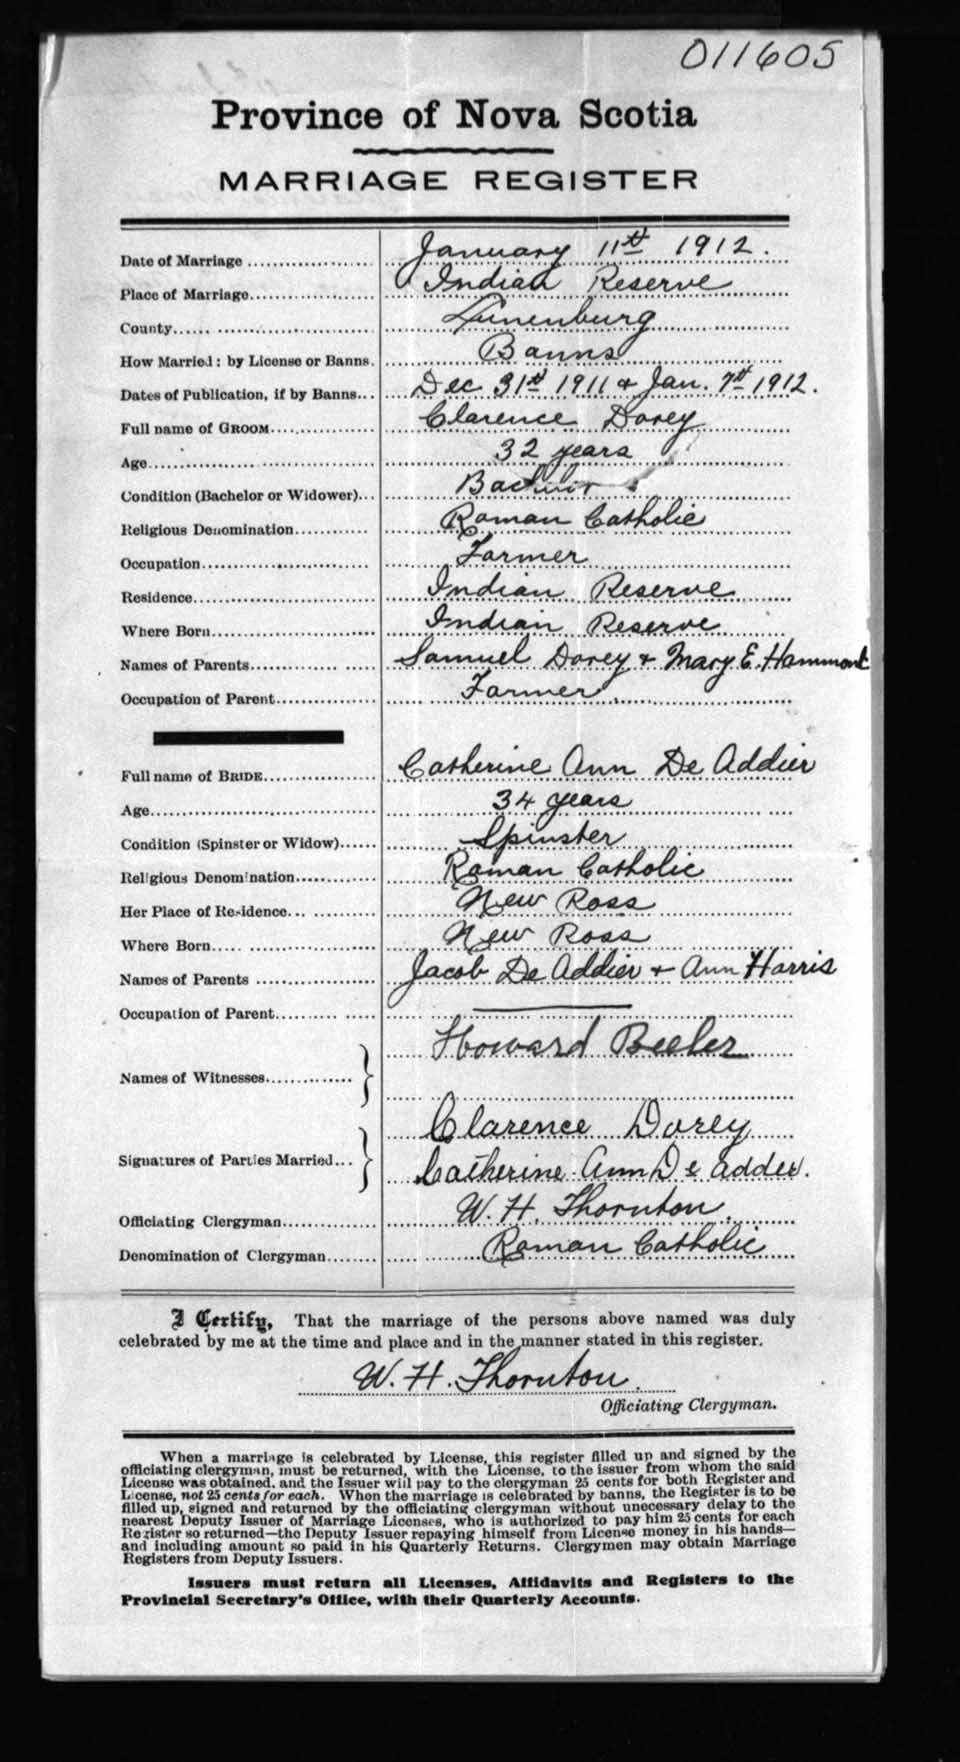 011605
Province of Nova Scotia
MARRIAGE REGISTER
Date of Marriage ........ January 11th 1912.
Place of Marriage ........ Indian Reserve
County ........ Lunenburg
How Married: by License or Banns. Banns
Dates of Publication, if by Banns... Dec 31st 1911 & Jan. 7th 1912.
Full name of GROOM ........ Clarence Dorey
Age ........ 32 years
Condition (Bachelor or Widower)... Bachelor
Religious Denomination ........ Roman Catholic
Occupation ........ Farmer
Residence ........ Indian Reserve
Where Born ........ Indian Reserve
Names of Parents ........ Samuel Dorey & Mary E. Hammont
Occupation of Parent ........ Farmer
Full name of BRIDE ........ Catherine Ann De Addier
Age ........ 34 years
Condition (Spinster or Widow) ...... Spinster
Religious Denomination ........ Roman Catholic
Her Place of Residence ........ New Ross
Where Born ........ New Ross
Names of Parents ........ Jacob De Addier + Ann Harris
Occupation of Parent ........ ——
Names of Witnesses ........ } Howard Beeler
Signatures of Parties Married ... } Clarence Dorey
Catherine Ann De Adder.
Officiating Clergyman ........ W. H. Thornton.
Denomination of Clergyman ........ Roman Catholic
I Certify, That the marriage of the persons above named was duly
celebrated by me at the time and place and in the manner stated in this register.
W. H. Thornton.
Officiating Clergyman.
When a marriage is celebrated by License, this register filled up and signed by the
officiating clergyman, must be returned, with the License, to the issuer from whom the said
License was obtained, and the Issuer will pay to the clergyman 25 cents for both Register and
License, not 25 cents for each. When the marriage is celebrated by banns, the Register is to be
filled up, signed and returned by the officiating clergyman without unecessary delay to the
nearest Deputy Issuer of Marriage Licenses, who is authorized to pay him 25 cents for each
Register so returned—the Deputy Issuer repaying himself from License money in his hands—
and including amount so paid in his Quarterly Returns. Clergymen may obtain Marriage
Registers from Deputy Issuers.
Issuers must return all Licenses, Affidavits and Registers to the
Provincial Secretary's Office, with their Quarterly Accounts.